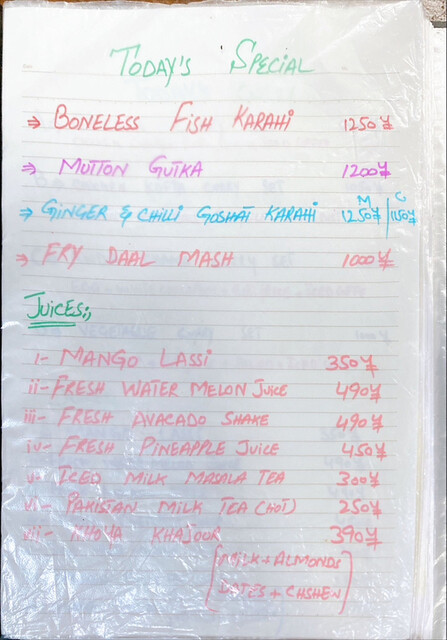 TODAY'S SPECIAL
⇒ BONELESS FISH KARAHI 1250¥
⇒ MUTTON GUTKA 1200¥
⇒ GINGER & CHILLI GOSHAT KARAHI M 1250¥ / C 1150¥
⇒ FRY DAAL MASH 1000¥
JUICES:;
i- MANGO LASSI 350¥
ii- FRESH WATER MELON JUICE 490¥
iii- FRESH AVACADO SHAKE 490¥
iv- FRESH PINEAPPLE JUICE 450¥
v- ICED MILK MASALA TEA 300¥
vi- PAKISTAN MILK TEA (HOT) 250¥
vii- KHOYA KHAJOUR 390¥
[MILK + ALMONDS
DATES + CHSHEW]